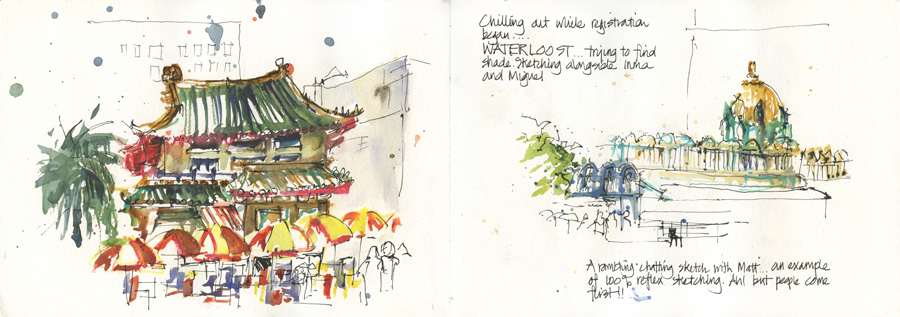 Chilling out while registration
began....
WATERLOO ST... trying to find
shade. Sketching alongside Inma
and Miguel
A rambling "chatting sketch with Matt... an example
of 100% reflex sketching. Ah! but people come
first!!